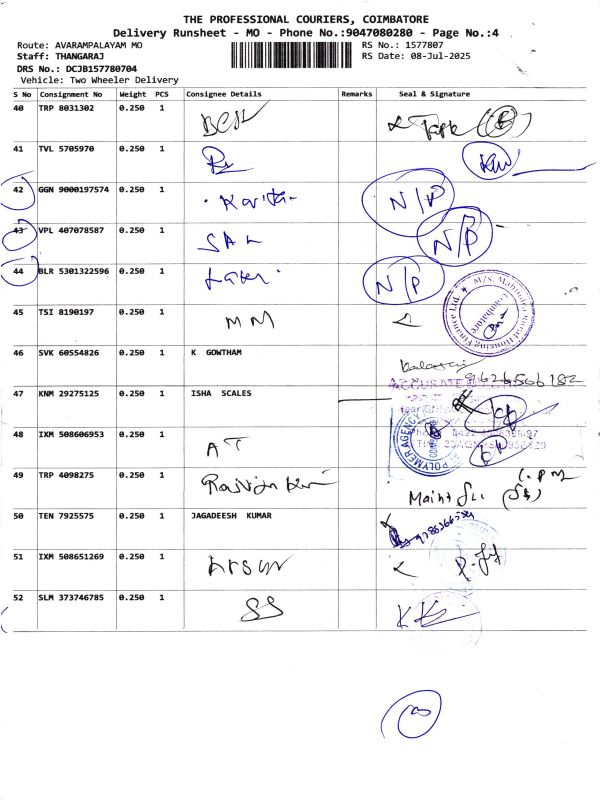 THE PROFESSIONAL COURIERS, COIMBATORE
Delivery Runsheet - MO - Phone No.:9047080280 - Page No.:4
Route: AVARAMPALAYAM MO
RS No.: 1577807
Staff: THANGARAJ
RS Date: 08-Jul-2025
DRS No.: DCJB157780704
Vehicle: Two Wheeler Delivery
S No Consignment No Weight PCS Consignee Details Remarks Seal & Signature
40 TRP 8031302 0.250 1
41 TVL 5705970 0.250 1
42 GGN 9000197574 0.250 1 N/P
43 VPL 407078587 0.250 1 N/P
44 BLR 5301322596 0.250 1 N/P
45 TSI 8190197 0.250 1 MM
M/s. Mahindra Rural Housing Finance Ltd.
Coimbatore
46 SVK 60554826 0.250 1 K GOWTHAM
9626566182
47 KNM 29275125 0.250 1 ISHA SCALES
ACCURATE
48 IXM 508606953 0.250 1 AT
POLYMER AGENCY
49 TRP 4098275 0.250 1
50 TEN 7925575 0.250 1 JAGADEESH KUMAR
51 IXM 508651269 0.250 1
52 SLM 373746785 0.250 1 SS